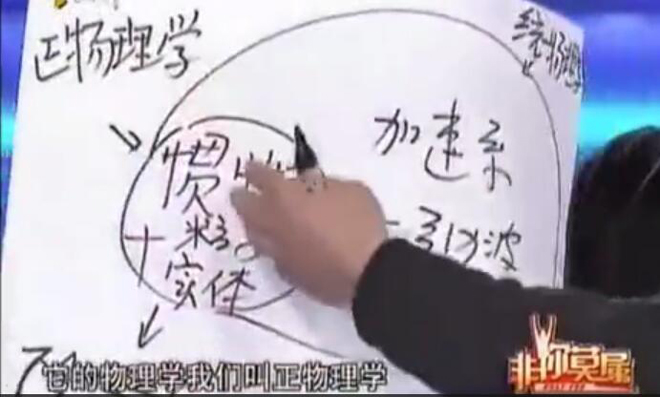 正物理学
统物理学
加速系
惯
+
引力波
实体
它的物理学我们叫正物理学
非你莫属